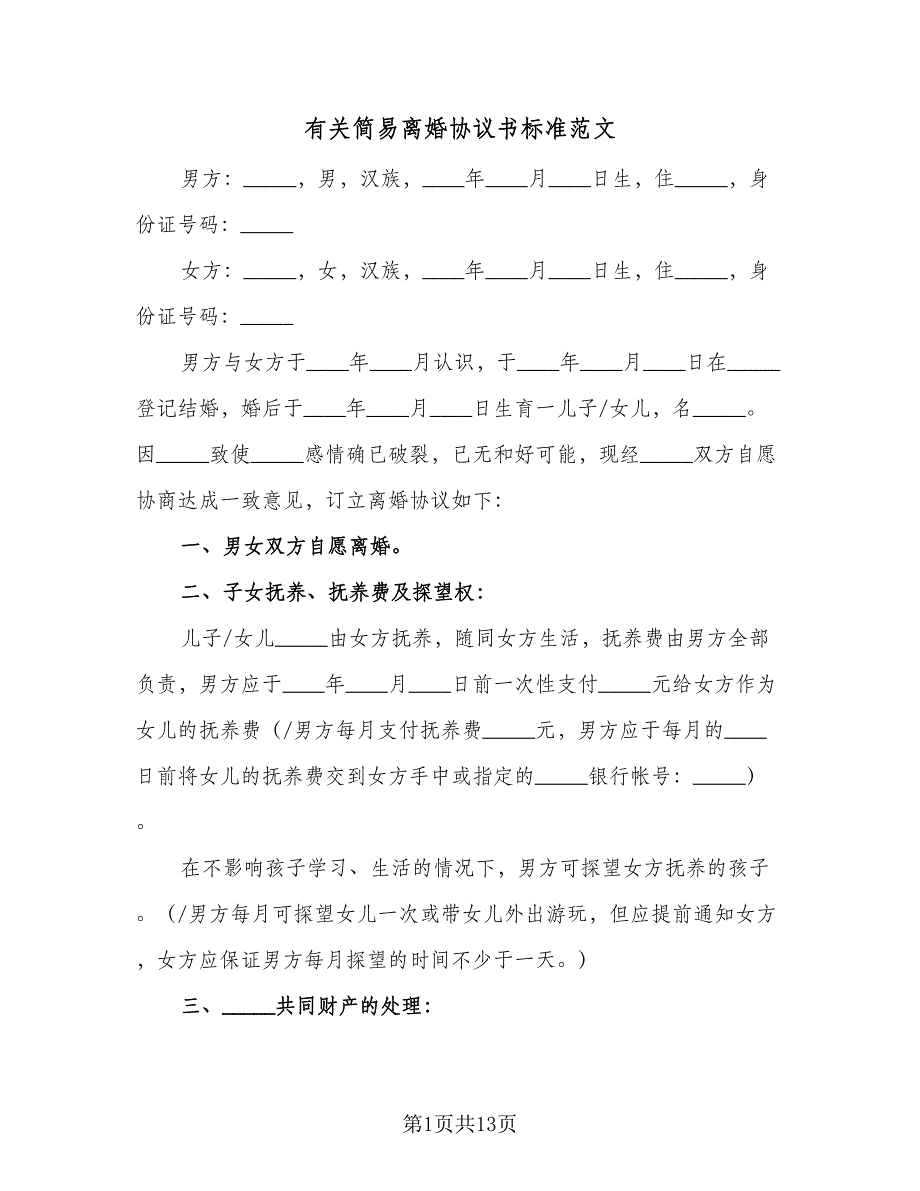 有关简易离婚协议书标准范文
男方：_____，男，汉族，____年____月____日生，住_____，身
份证号码：_____
女方：_____，女，汉族，____年____月____日生，住_____，身
份证号码：_____
男方与女方于____年____月认识，于____年____月____日在_____
登记结婚，婚后于____年____月____日生育一儿子/女儿，名_____。
因_____致使_____感情确已破裂，已无和好可能，现经_____双方自愿
协商达成一致意见，订立离婚协议如下：
一、男女双方自愿离婚。
二、子女抚养、抚养费及探望权：
儿子/女儿_____由女方抚养，随同女方生活，抚养费由男方全部
负责，男方应于____年____月____日前一次性支付_____元给女方作为
女儿的抚养费（/男方每月支付抚养费_____元，男方应于每月的____
日前将女儿的抚养费交到女方手中或指定的_____银行帐号：_____）
。
在不影响孩子学习、生活的情况下，男方可探望女方抚养的孩子
。（/男方每月可探望女儿一次或带女儿外出游玩，但应提前通知女方
，女方应保证男方每月探望的时间不少于一天。）
三、_____共同财产的处理：
第1页共13页